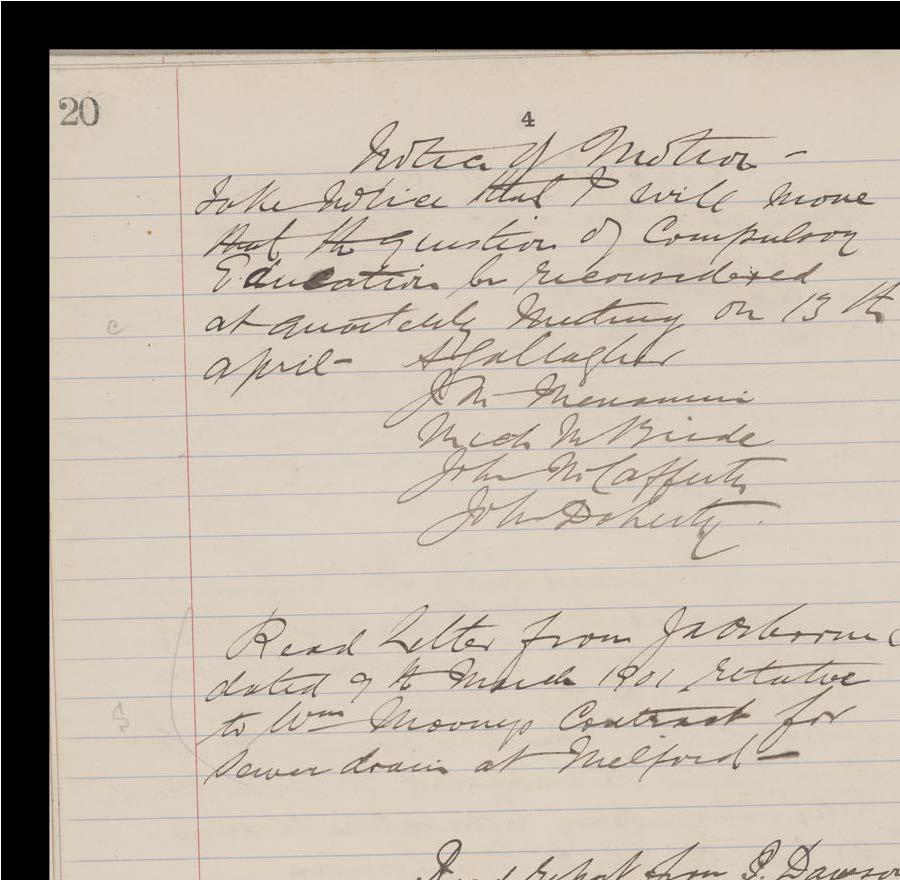 20
4
Notice of Motion -
Take Notice that I will move
that the question of Compulsory
Education be reconsidered
at quarterly Meeting on 13th
april - Gallagher
J Mc Menamin
Mich McBride
John McCafferty
John Doherty
Read Letter from Ja Osborne
dated 9th March 1901 relative
to Wm Mooneys Contract for
sewer drain at Milford -
Read report from Dawson